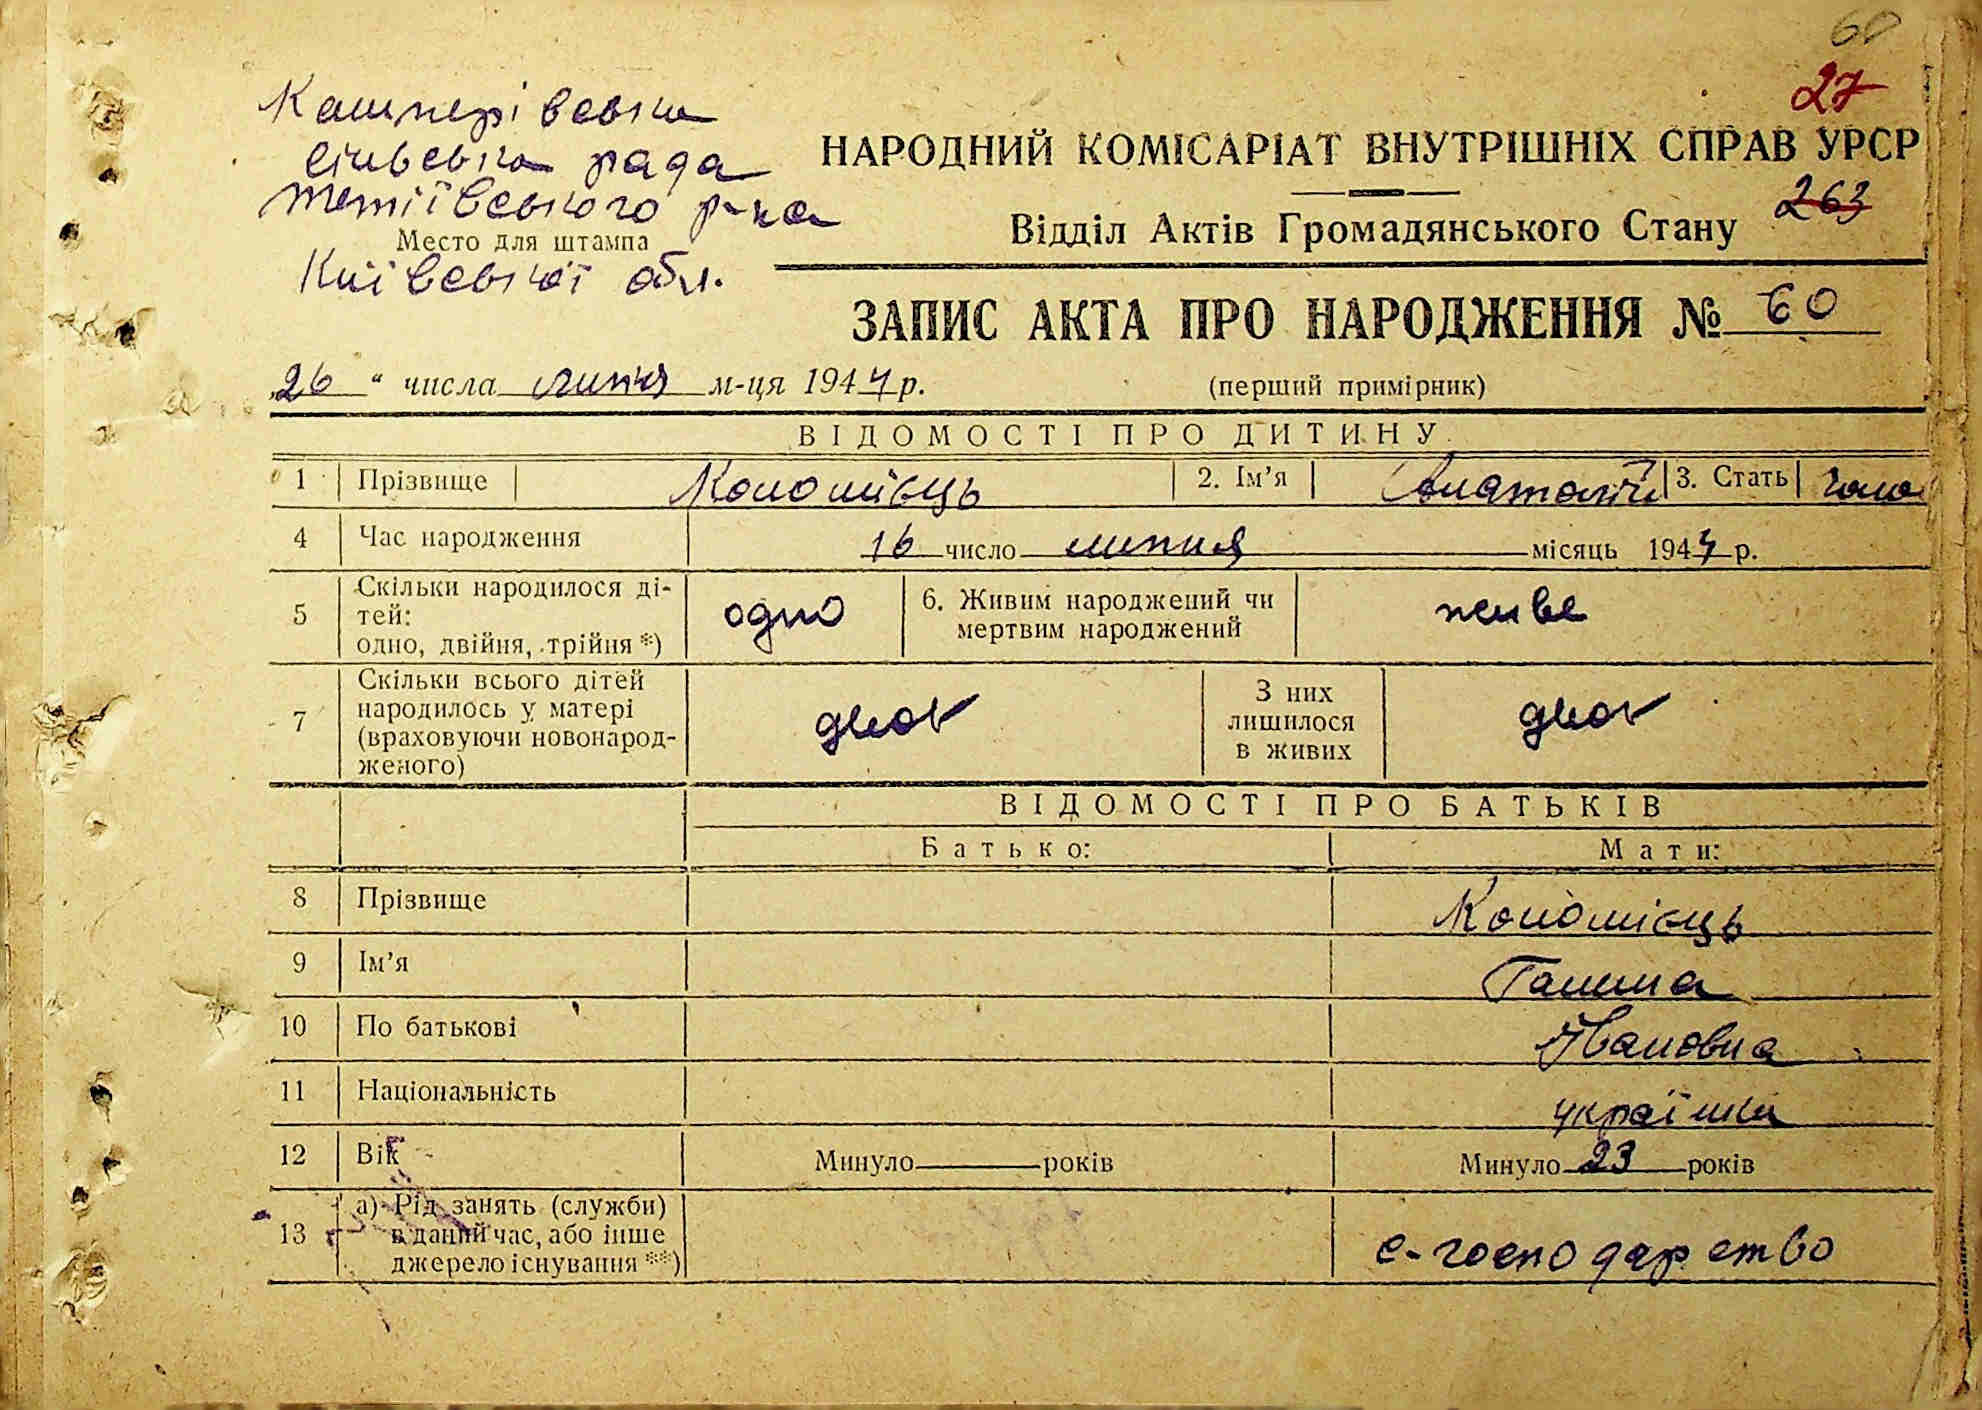 60
27
Кашперівська
сільська рада
Тетіївського р-на
Место для штампа
Київської обл.
НАРОДНИЙ КОМІСАРІАТ ВНУТРІШНІХ СПРАВ УРСР
263
Відділ Актів Громадянського Стану
ЗАПИС АКТА ПРО НАРОДЖЕННЯ № 60
„26“ числа липня м-ця 1944 р. (перший примірник)
ВІДОМОСТІ ПРО ДИТИНУ
1 Прізвище Коломієць 2. Ім'я Анатолій 3. Стать чоло
4 Час народження 16 число липня місяць 1944 р.
5 Скільки народилося ді-
тей:
одно, двійня, трійня *) одно 6. Живим народжений чи
мертвим народжений живе
7 Скільки всього дітей
народилось у матері
(враховуючи новонарод-
женого) двоє З них
лишилося
в живих двоє
ВІДОМОСТІ ПРО БАТЬКІВ
Батько: Мати:
8 Прізвище Коломієць
9 Ім'я Ганна
10 По батькові Івановна
11 Національність українка
12 Вік Минуло років Минуло 23 років
13 а) Рід занять (служби)
в даний час, або інше
джерело існування **) с-господарство